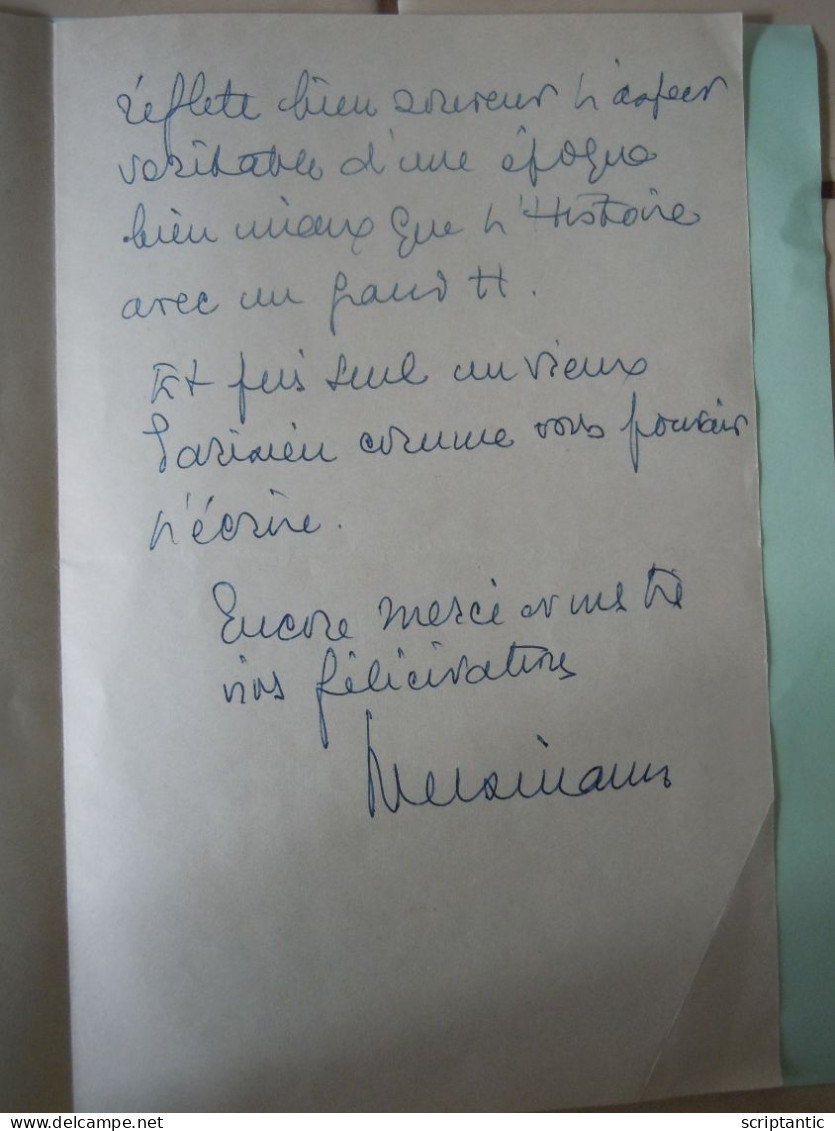 réflète bien souvent l'aspect
véritable d'une époque
bien mieux que l'Histoire
avec un grand H.
Et puis seul un vieux
Parisien comme vous pouvait
l'écrire.
Encore merci et
vos félicitations
scriptantic